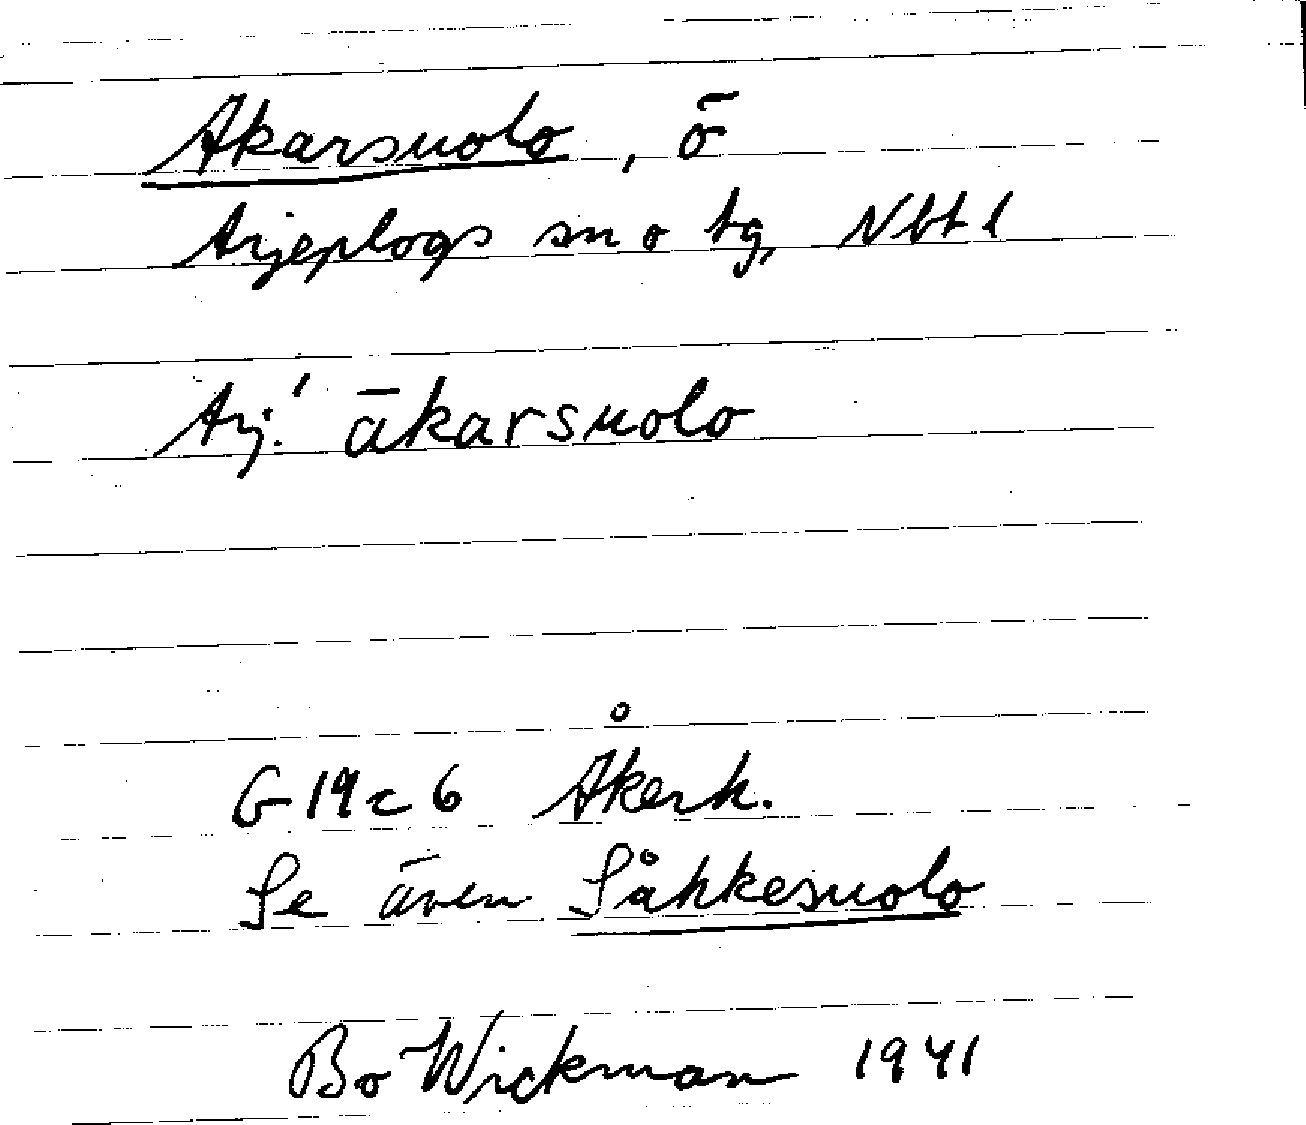 Akarsuolo, ö
Arjeplogs sn o tg, Nbt l
Arj.! ākarsuolo
G 19 c 6 Åkerh.
Se även Såhkesuolo
Bo Wickman 1941